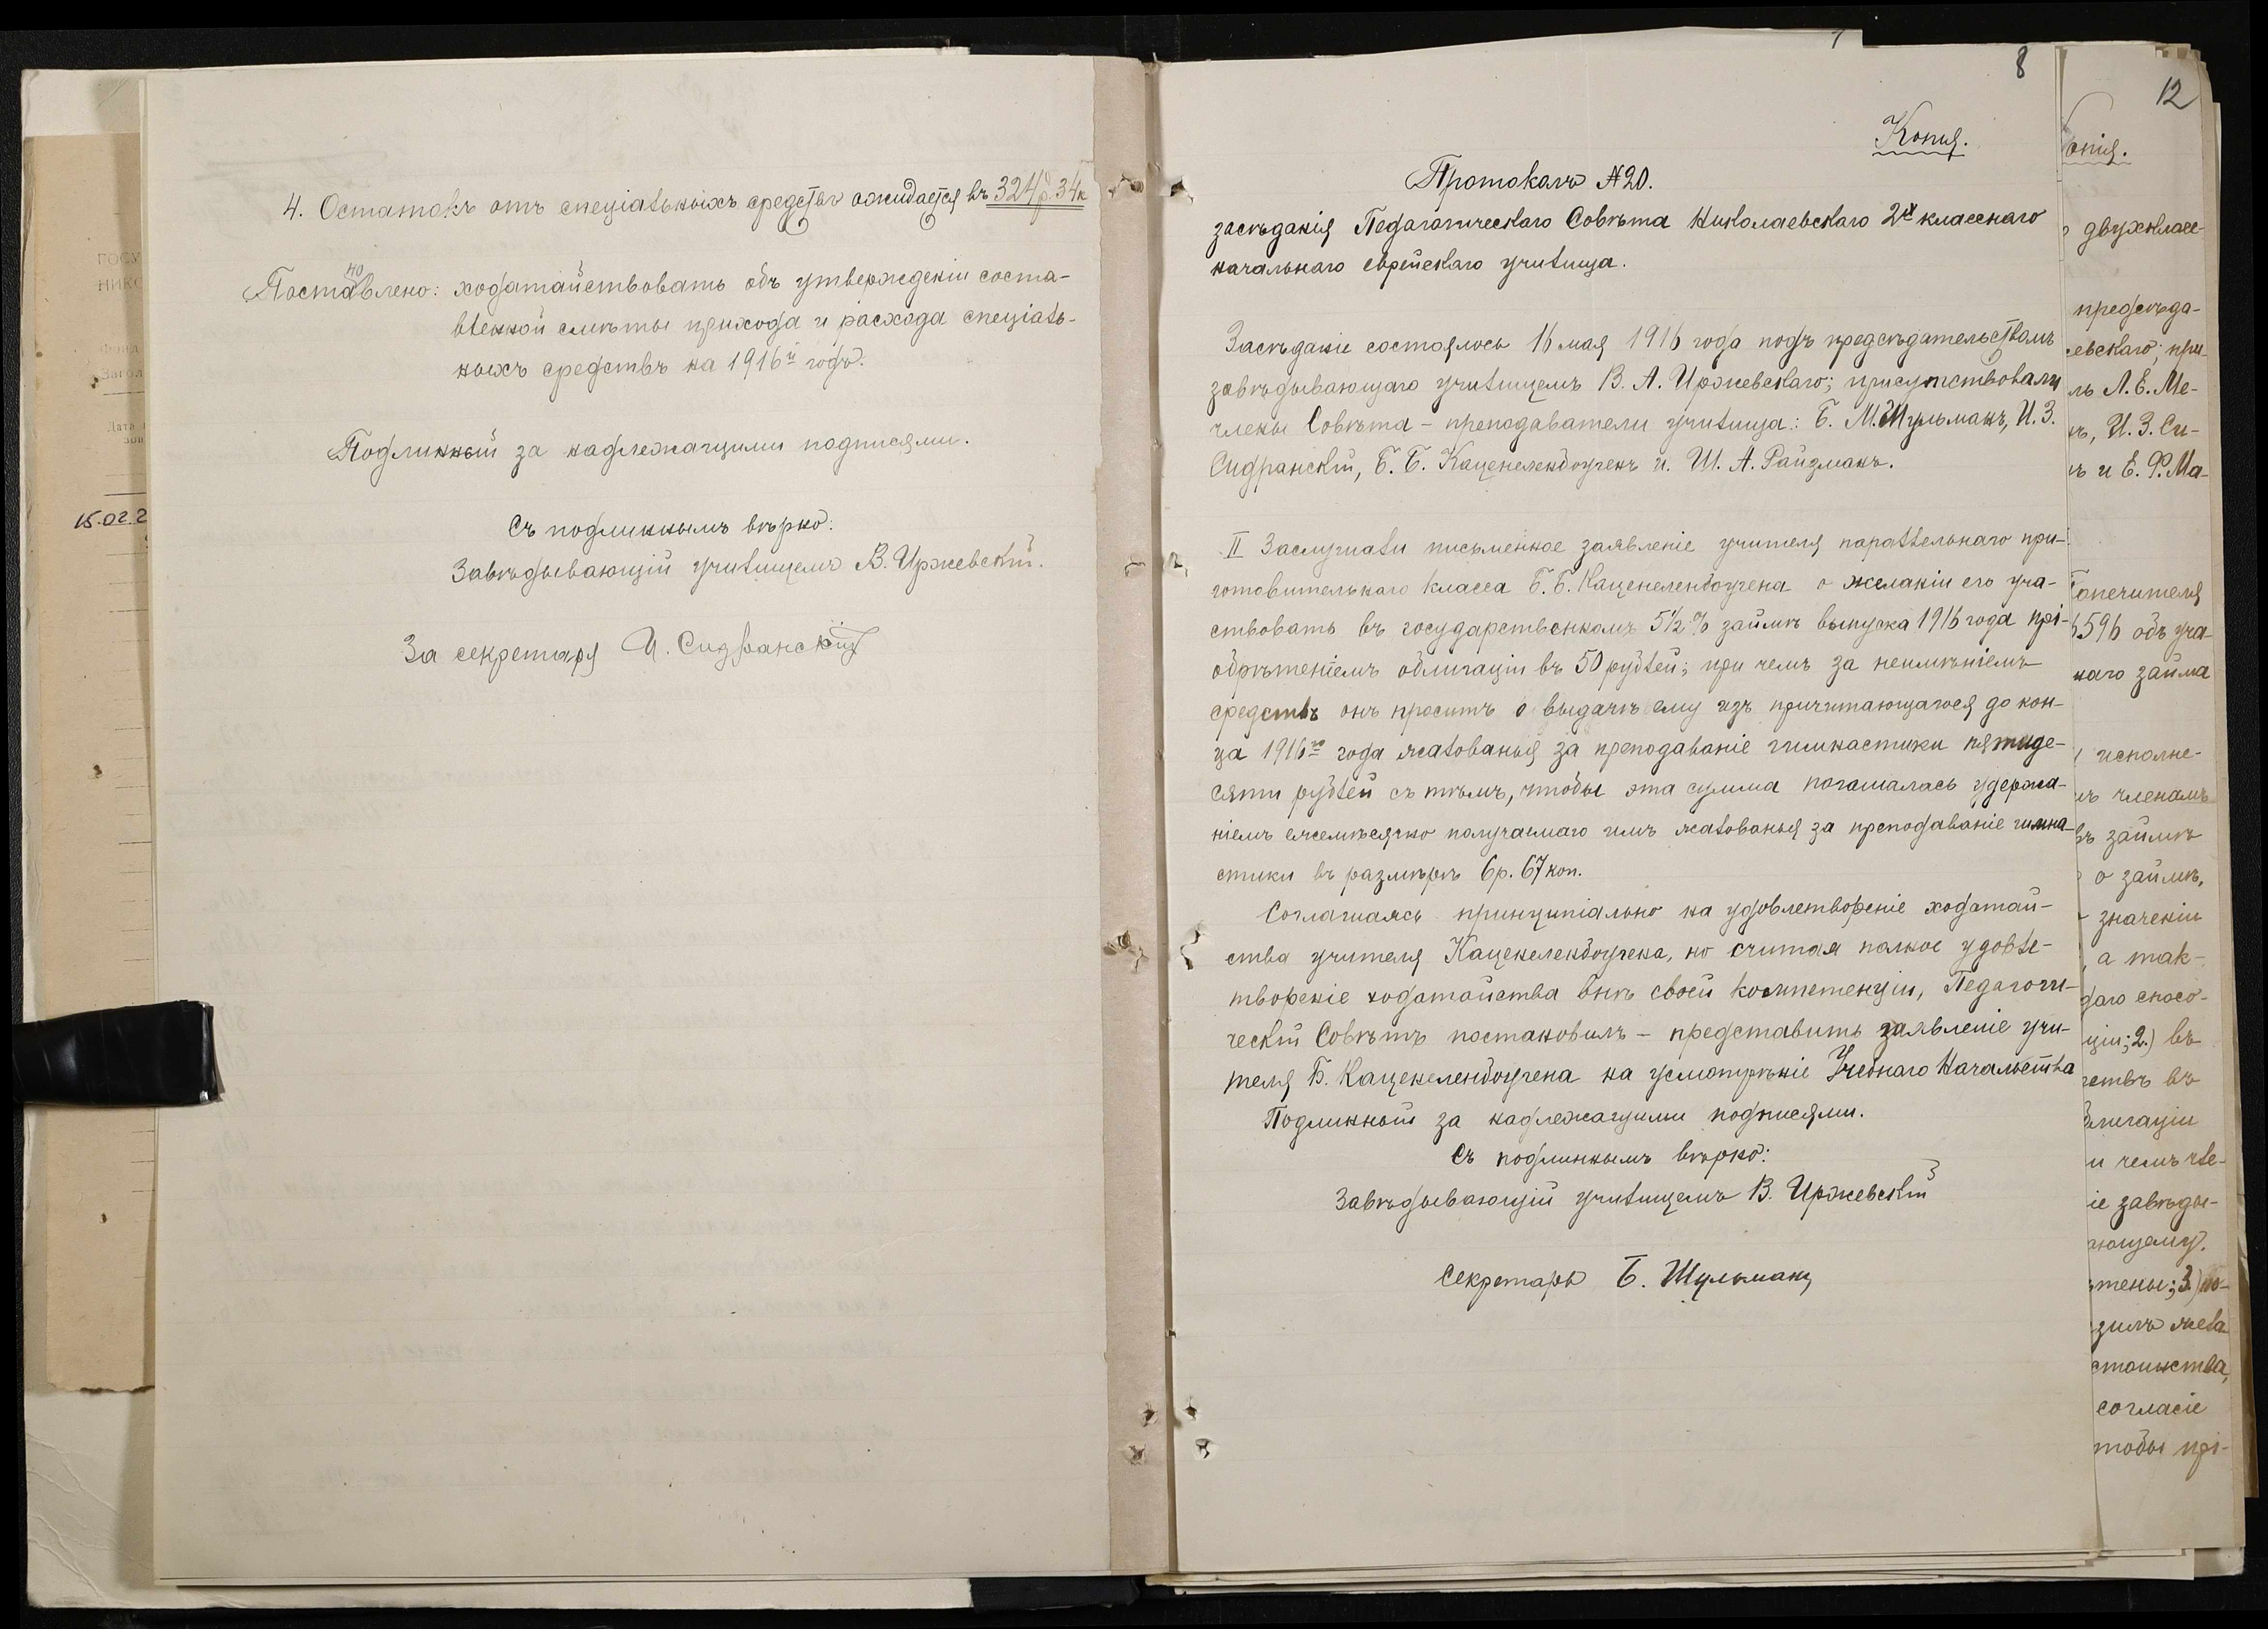 4. Остатокъ отъ спеціальныхъ средствъ ожидается въ 324р. 34к
но
Поставлено: ходатайствовать объ утвержденіи соста-
вленной смѣты прихода и расхода спеціаль-
ныхъ средствъ на 1916й годъ.
Подлинный за надлежащими подписями.
Съ подлиннымъ вѣрно:
Завѣдывающій училищемъ В. Иржевскій.
За секретаря И. Сидранскій
15.02.2
8
Копія.
Протоколъ №20.
засѣданія Педагогическаго Совѣта Николаевскаго 2х класснаго
начальнаго еврейскаго училища.
Засѣданіе состоялось 16 мая 1916 года подъ предсѣдательствомъ
завѣдывающаго училищемъ В. А. Иржевскаго; присутствовали
члены Совѣта - преподаватели училища: Б. М. Шульманъ, И. З.
Сидранскій, Б. Б. Каценеленбогенъ и Ш. А. Райзманъ.
II Заслушали письменное заявленіе учителя параллельнаго при-
готовительнаго класса Б. Б. Каценеленбогена о желаніи его уча-
ствовать въ государственномъ 5 1/2 % займѣ выпуска 1916 года прі-
обрѣтеніемъ облигаціи въ 50 рублей; при чемъ за неимѣніемъ
средствъ онъ проситъ о выдачѣ ему изъ причитающагося до кон-
ца 1916го года жалованья за преподаваніе гимнастики пятиде-
сяти рублей съ тѣмъ, чтобы эта сумма погашалась удержа-
ніемъ ежемѣсячно получаемаго имъ жалованья за преподаваніе гимна-
стики въ размѣрѣ 6р. 67 коп.
Соглашаясь принципіально на удовлетвореніе ходатай-
ства учителя Каценеленбогена, но считая полное удовле-
твореніе ходатайства внѣ своей компетенціи, Педагоги-
ческій Совѣтъ постановилъ - представить заявленіе учи-
теля Б. Каценеленбогена на усмотрѣніе Учебнаго Начальства
Подлинный за надлежащими подписями.
Съ подлиннымъ вѣрно:
Завѣдывающій училищемъ В. Иржевскій
Секретарь Б. Шульманъ
12
опія.
двухкласс-
предсѣда-
евскаго; при-
ль Л. Е. Ме-
ъ, И. З. Си-
ъ и Е. Ф. Ма-
опечителя
6596 объ уча-
наго займа
исполне-
ъ членамъ
въ займѣ
о займѣ,
значеніи
, а так-
даго спосо-
ціи; 2.) въ
ствъ въ
блигаціи
и чемъ чле-
іе завѣды-
ающему.
тены; 3.) по-
зилъ жела-
стоинства,
согласіе
тобы прі-